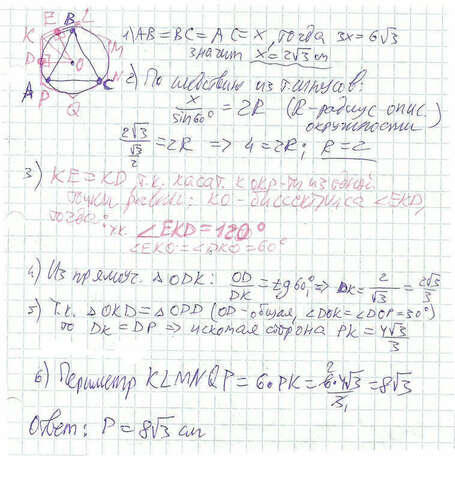 E B L
K
M
D O
A C N
P
Q
1) AB = BC = AC = x, тогда 3x = 6√3
значит x = 2√3 см
2) По следствию из т. синусов:
x/sin60° = 2R (R - радиус опис. окружности)
2√3/(√3/2) = 2R => 4 = 2R; R = 2
3) KE = KD т.к. касат. к окр-ти из одной
точки равны; KO - биссектриса ∠EKD,
тогда т.к. ∠EKD = 120°
∠EKO = ∠DKO = 60°
4) Из прямоуг. △ODK: OD/DK = tg60° => DK = 2/√3 = 2√3/3
5) Т.к. △OKD = △OPD (OD - общая, ∠DOK = ∠DOP = 30°)
то DK = DP => искомая сторона PK = 4√3/3
6) Периметр KLMNQP = 6·PK = 6·4√3/3 = 8√3
Ответ: P = 8√3 см